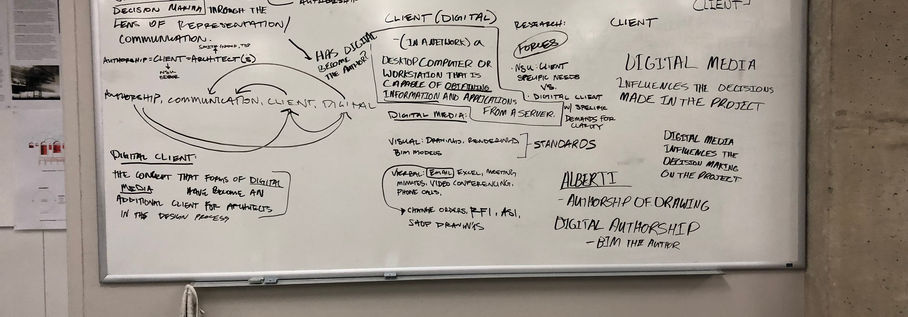 DECISION MAKING THROUGH THE
LENS OF REPRESENTATION/
COMMUNICATION.
AUTHORSHIP = CLIENT + ARCHITECT(S)
NSU
AUTHORSHIP, COMMUNICATION, CLIENT, DIGITAL
DIGITAL CLIENT:
THE CONCEPT THAT FORMS OF DIGITAL
MEDIA HAVE BECOME AN
ADDITIONAL CLIENT FOR ARCHITECTS
IN THE DESIGN PROCESS
AUTHORSHIP
HAS DIGITAL
BECOME
THE AUTHOR?
CLIENT (DIGITAL)
- (IN A NETWORK) A
DESKTOP COMPUTER OR
WORKSTATION THAT IS
CAPABLE OF OBTAINING
INFORMATION AND APPLICATIONS
FROM A SERVER.
DIGITAL MEDIA:
VISUAL: DRAWINGS, RENDERINGS
BIM MODELS
STANDARDS
VERBAL: EMAIL, EXCEL, MEETING
MINUTES, VIDEO CONFERENCING,
PHONE CALLS,
CHANGE ORDERS, RFI, ASI,
SHOP DRAWINGS
RESEARCH:
FORCES
• NSU: CLIENT
SPECIFIC NEEDS
VS.
• DIGITAL CLIENT
W/ SPECIFIC
DEMANDS FOR
CLARITY
CLIENT
CLIENT
DIGITAL MEDIA
INFLUENCES THE DECISIONS
MADE IN THE PROJECT
DIGITAL MEDIA
INFLUENCES THE
DECISION MAKING
ON THE PROJECT
ALBERTI
- AUTHORSHIP OF DRAWING
DIGITAL AUTHORSHIP
- BIM THE AUTHOR